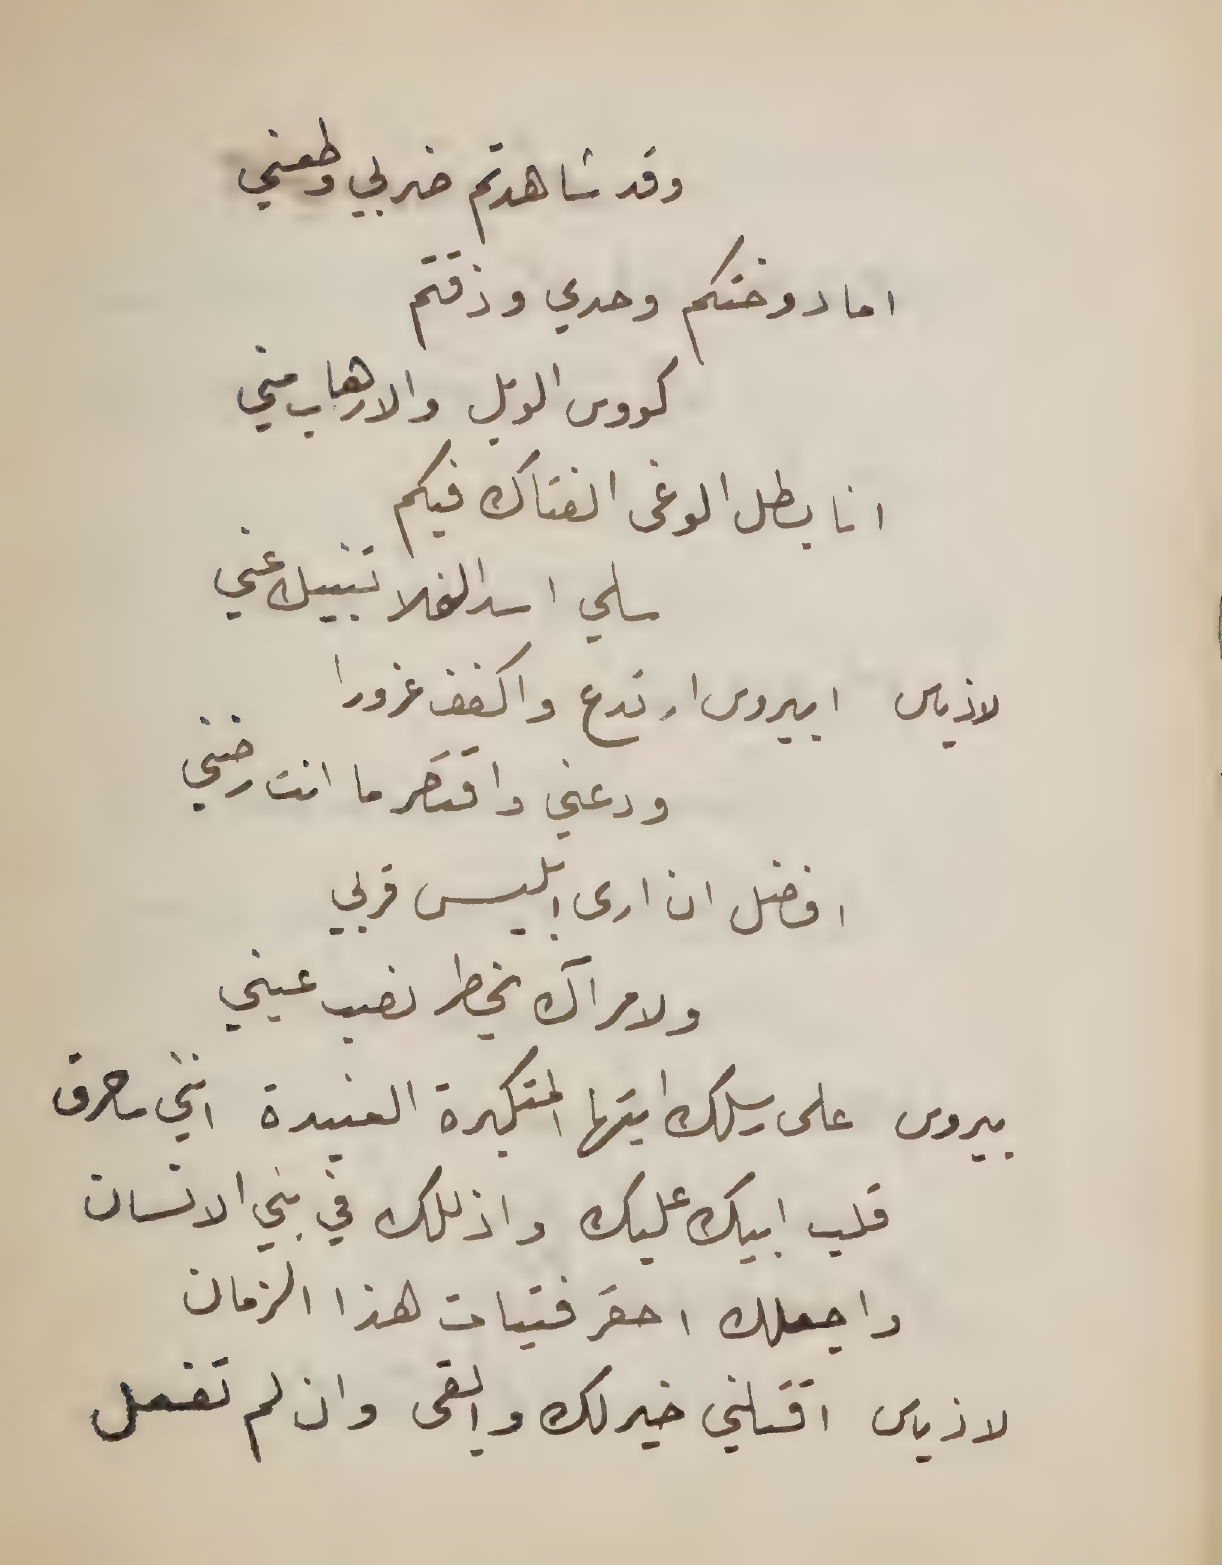 وقد شاهدتم ضربي وطعني
اما دوختكم وحدي وذقتم
كووس الويل والارهاب مني
انا بطل الوغى الفتاك فيكم
سلي اسد الفلا تنبيك عني
لاذياس ابيروس ارتدع واكفف غرورا
ودعني واقتصر ما انت رضني
افضل ان ارى ابليس قربي
ولا مراآك يخطر نصب عيني
بيروس على رسلك ايتها المتكبرة العنيدة انني ساحرق
قلب ابيك عليك واذلك في بني الانسان
واجعلك احقر فتيات هذا الزمان
لاذياس اقتلني خير لك وابقى وان لم تفعل